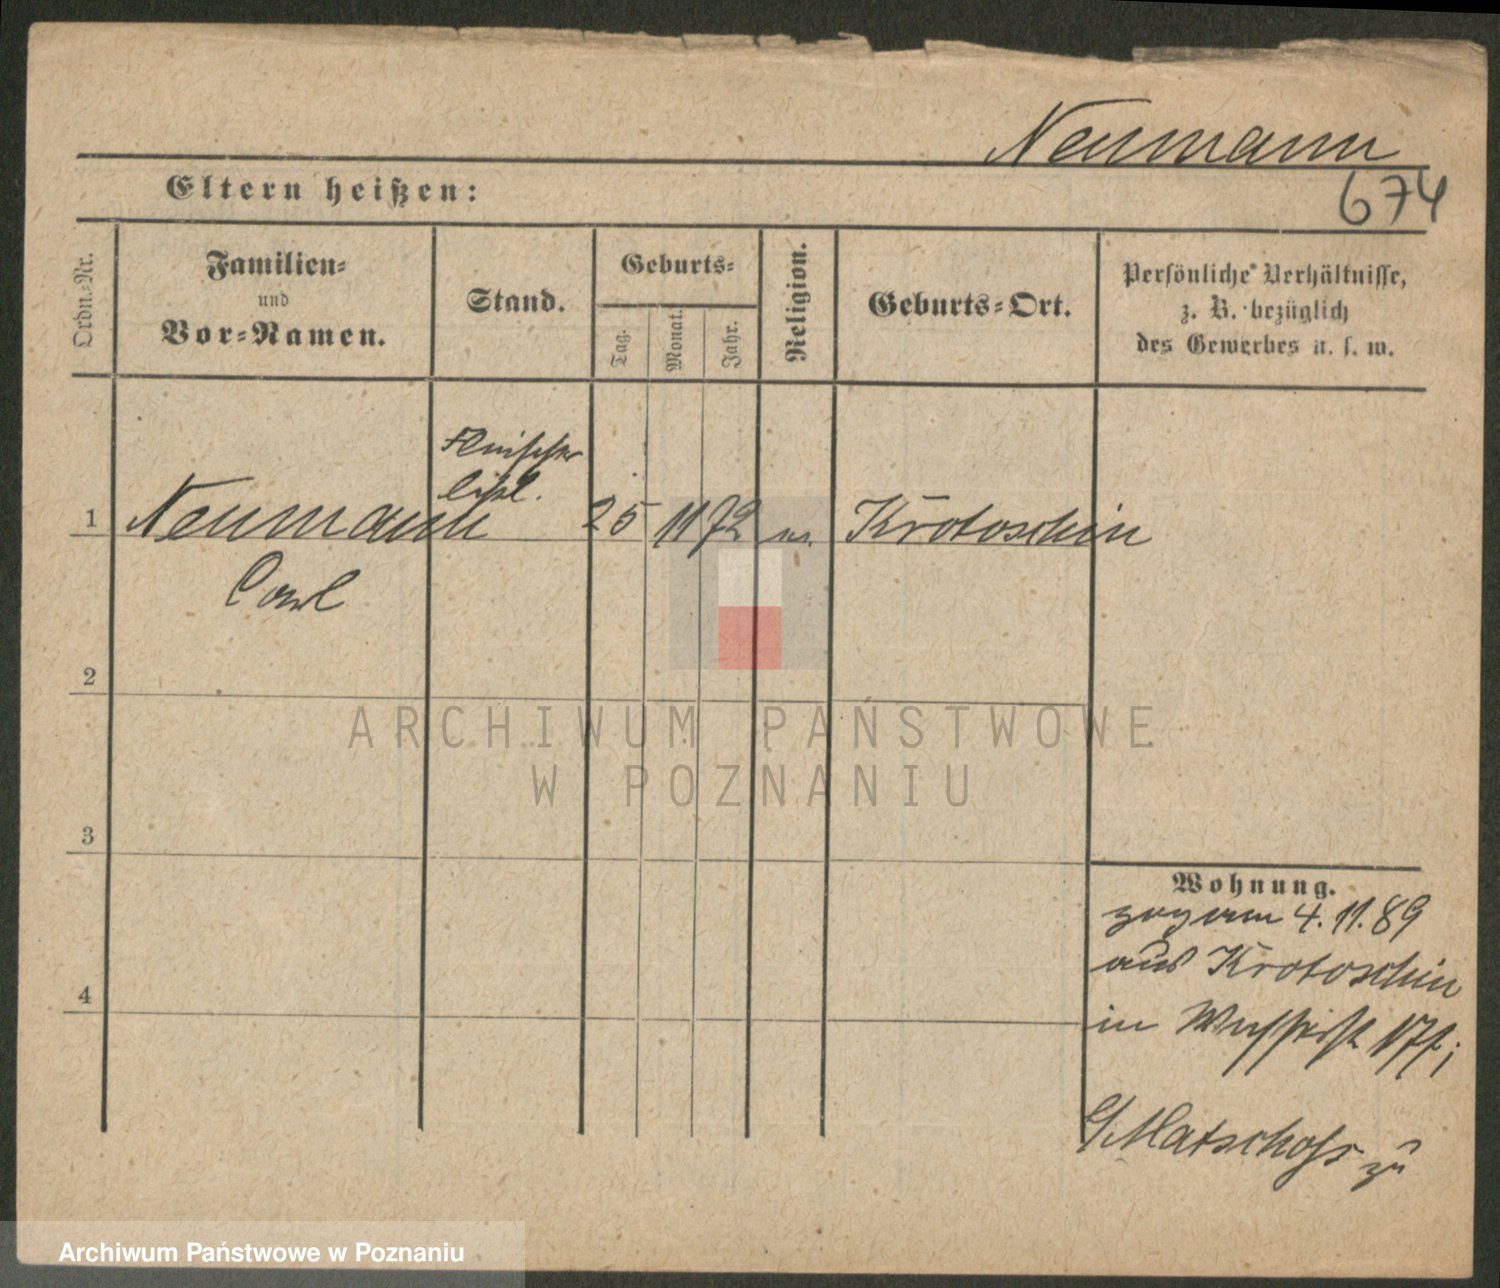 Neumann
674
Eltern heißen:
Ordn.-Nr.
Familien-
und
Vor-Namen.
Stand.
Geburts-
Tag.
Monat.
Jahr.
Religion.
Geburts-Ort.
Persönliche Verhältnisse,
z. B. bezüglich
des Gewerbes u. s. w.
1
Neumann
Carl
Fleischer
25 11 72
Krotoschin
2
3
4
Wohnung.
zog am 4.11.89
aus Krotoschin
in
b/Matschoss zu
ARCHIWUM PAŃSTWOWE
W POZNANIU
Archiwum Państwowe w Poznaniu